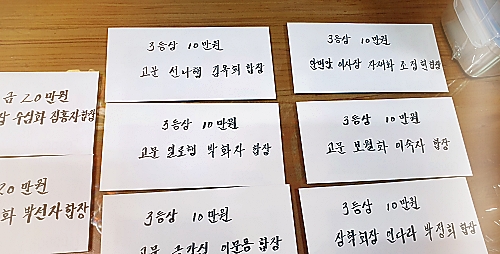 3등상 10만원
고문 신나행 김옥희 합장
3등상 10만원
이사장 자재화 조정현 합장
금 20만원
수섭화 김홍자 합장
3등상 10만원
고문 일로행 박화자 합장
3등상 10만원
고문 보월화 이숙자 합장
20만원
화 박선자 합장
3등상 10만원
고문 이문용 합장
3등상 10만원
연다라 박정희 합장